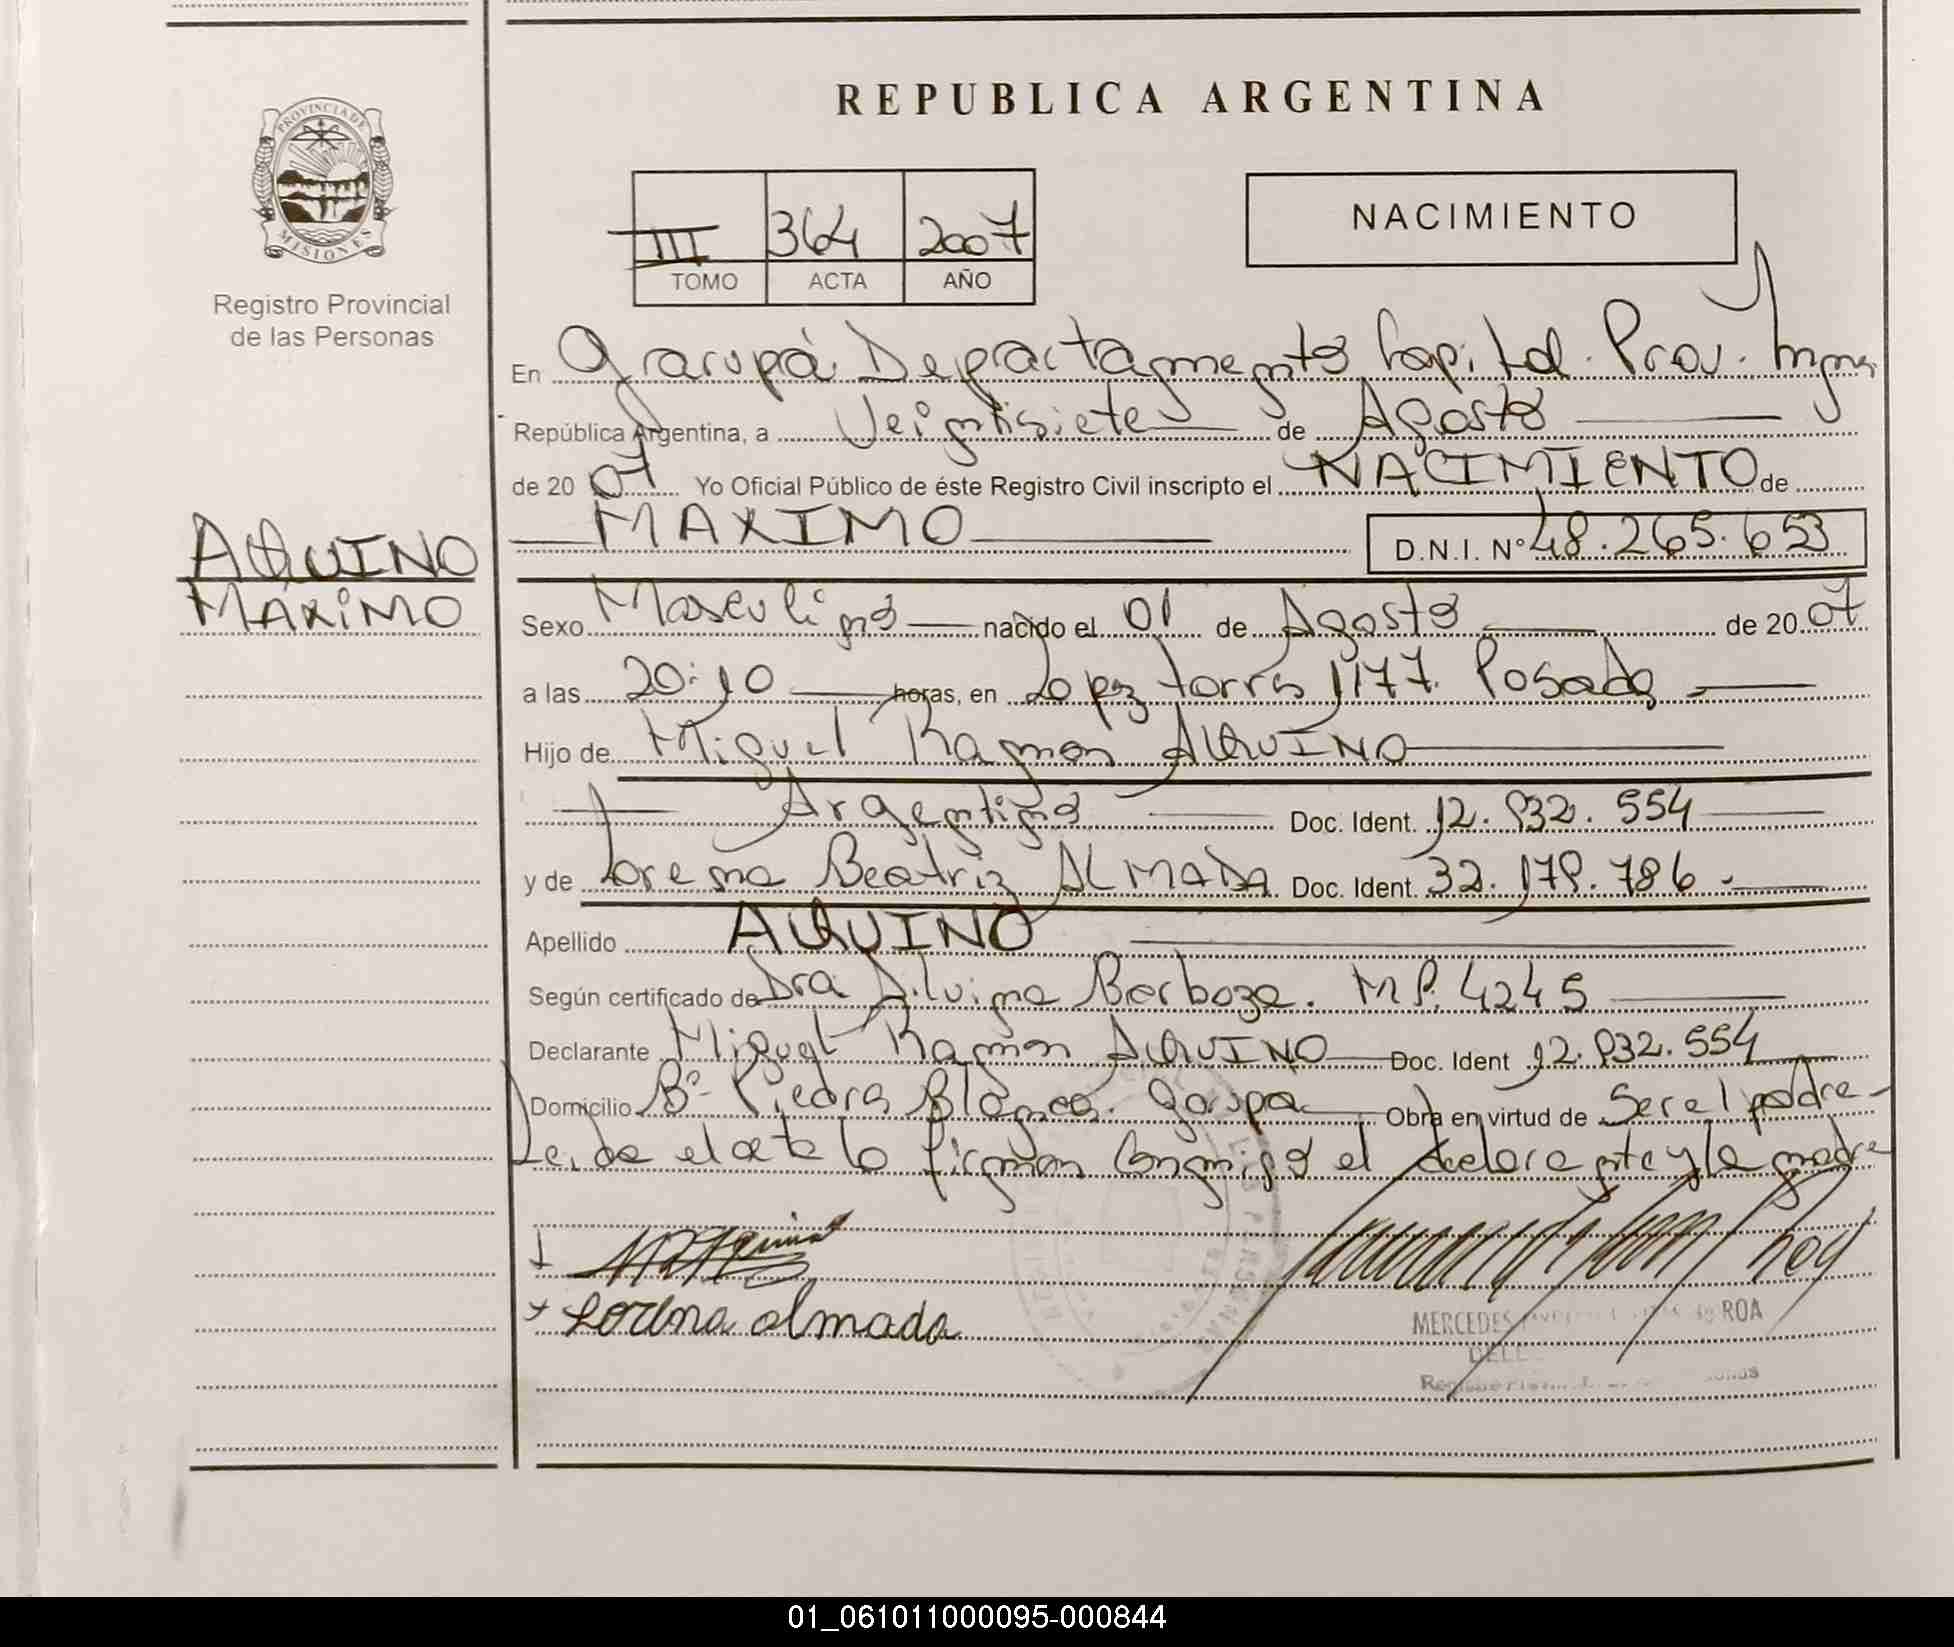 REPUBLICA ARGENTINA
PROVINCIA DE
MISIONES
Registro Provincial
de las Personas
III 364 2007
TOMO ACTA AÑO
NACIMIENTO
En Garupá Departamento Capital. Prov. Mnes
República Argentina, a Veintisiete de Agosto
de 2007 Yo Oficial Público de éste Registro Civil inscripto el NACIMIENTO de
MAXIMO D.N.I. Nº 48.265.653
AQUINO
MÁXIMO
Sexo Masculino nacido el 01 de Agosto de 2007
a las 20:10 horas, en Lopez torres 1177. Posadas
Hijo de Miguel Ramon AQUINO
Argentino Doc. Ident. 12.932.554
y de Lorena Beatriz ALMADA Doc. Ident. 32.179.786.
Apellido AQUINO
Según certificado de Dra Silvina Barboza. M P. 4245
Declarante Miguel Ramon AQUINO Doc. Ident 12.932.554
Domicilio Bº Piedras Blancas. Garupa Obra en virtud de Ser el padre
Leida el acta la firman Conmigo el declarante y la madre
Lorena almada
MERCEDES ROA